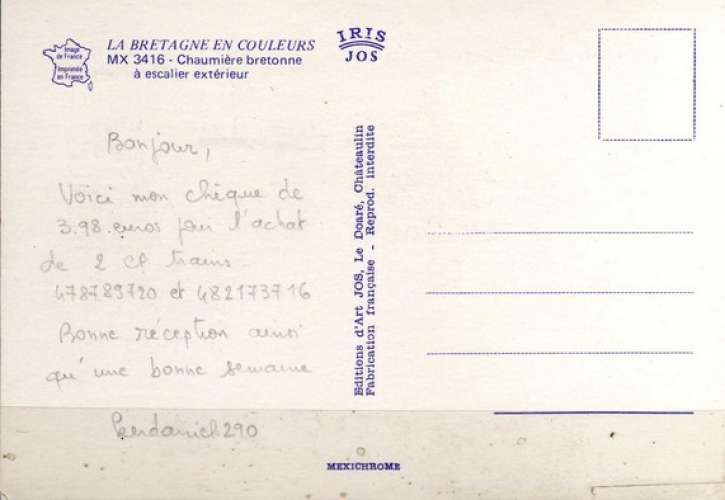 Image
de France
Imprimée
en France
LA BRETAGNE EN COULEURS
MX 3416 - Chaumière bretonne
à escalier extérieur
IRIS
JOS
Bonjour,
Voici mon chèque de
3.98 euros pour l'achat
de 2 CP trains
478789720 et 482173716
Bonne réception ainsi
qu'une bonne semaine
290
Editions d'Art JOS, Le Doaré, Châteaulin
Fabrication française - Reprod. interdite
MEXICHROME